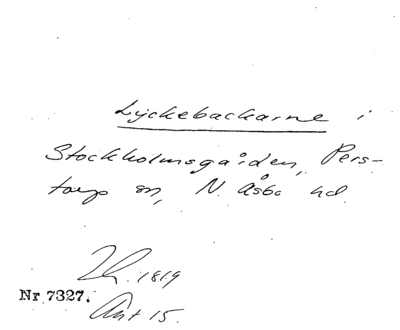 Lyckebackarne i
Stockholmsgården, Pers-
torp sn, N. Åsbo hd.
Lh. 1819
Nr 7327.
Akt 15.